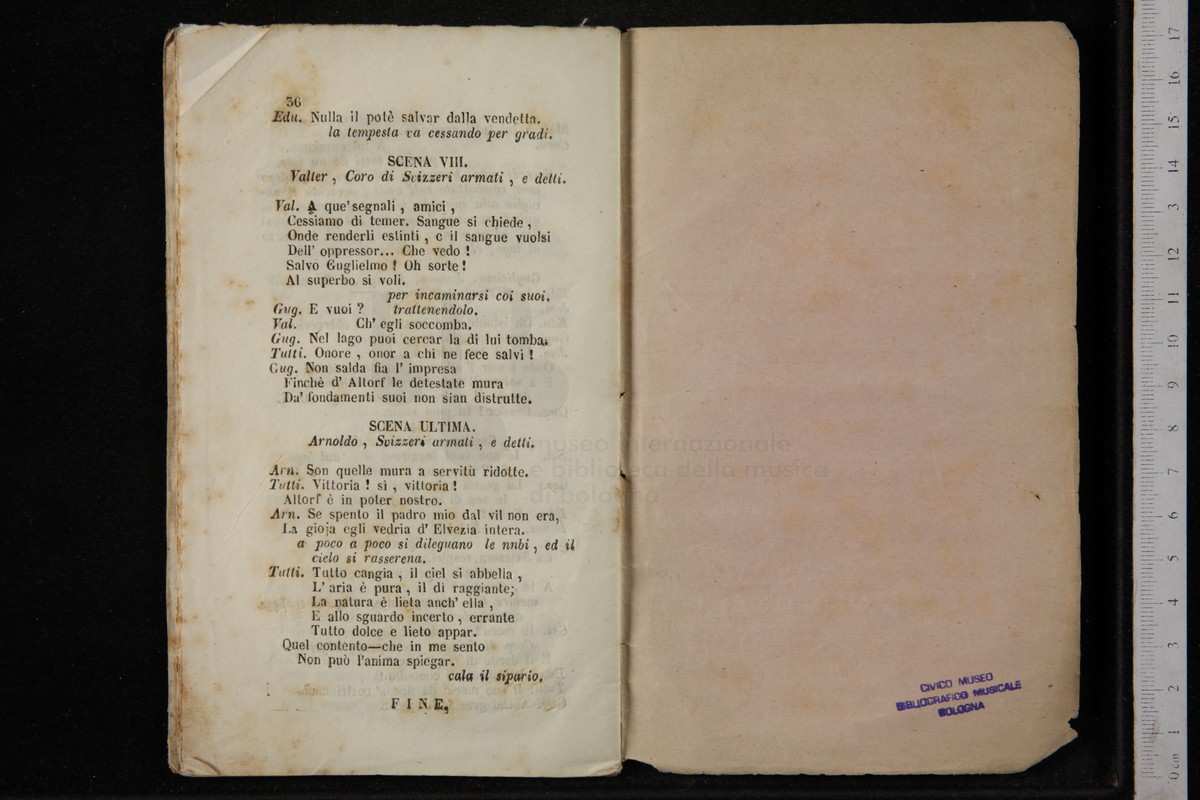 36
Edu. Nulla il potè salvar dalla vendetta.
la tempesta va cessando per gradi.
SCENA VIII.
Valter , Coro di Svizzeri armati , e detti.
Val. A que' segnali , amici ,
Cessiamo di temer. Sangue si chiede ,
Onde renderli estinti , e il sangue vuolsi
Dell' oppressor... Che vedo !
Salvo Guglielmo ! Oh sorte !
Al superbo si voli.
per incaminarsi coi suoi.
Gug. E vuoi ? trattenendolo.
Val. Ch' egli soccomba.
Gug. Nel lago puoi cercar la di lui tomba.
Tutti. Onore , onor a chi ne fece salvi !
Gug. Non salda fia l' impresa
Finchè d' Altorf le detestate mura
Da' fondamenti suoi non sian distrutte.
SCENA ULTIMA.
Arnoldo , Svizzeri armati , e detti.
Arn. Son quelle mura a servitù ridotte.
Tutti. Vittoria ! sì , vittoria !
Altorf è in poter nostro.
Arn. Se spento il padro mio dal vil non era,
La gioja egli vedria d' Elvezia intera.
a poco a poco si dileguano le nnbi , ed il
cielo si rasserena.
Tutti. Tutto cangia , il ciel si abbella ,
L' aria è pura , il dì raggiante;
La natura è lieta anch' ella ,
E allo sguardo incerto , errante
Tutto dolce e lieto appar.
Quel contento—che in me sento
Non può l'anima spiegar.
cala il sipario.
FINE.
museo internazionale
e biblioteca della musica
di bologna
CIVICO MUSEO
BIBLIOGRAFICO MUSICALE
BOLOGNA
17
16
15
14
3
12
11
10
9
8
7
6
5
4
3
2
1
0 cm